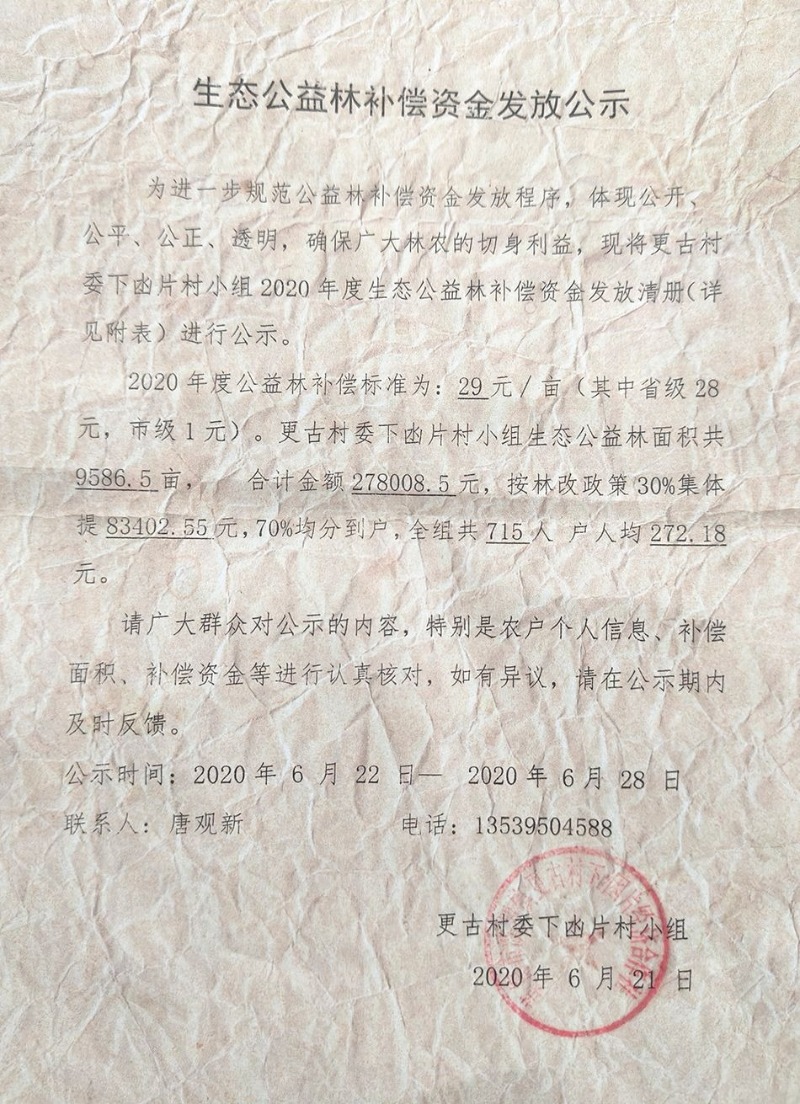 生态公益林补偿资金发放公示
为进一步规范公益林补偿资金发放程序，体现公开、
公平、公正、透明，确保广大林农的切身利益，现将更古村
委下凼片村小组2020年度生态公益林补偿资金发放清册（详
见附表）进行公示。
2020年度公益林补偿标准为：29元/亩（其中省级28
元，市级1元）。更古村委下凼片村小组生态公益林面积共
9586.5亩， 合计金额278008.5元，按林改政策30%集体
提83402.55元，70%均分到户，全组共715人 户人均272.18
元。
请广大群众对公示的内容，特别是农户个人信息、补偿
面积、补偿资金等进行认真核对，如有异议，请在公示期内
及时反馈。
公示时间：2020年6月22日— 2020年6月28日
联系人：唐观新 电话：13539504588
更古村委下凼片村小组
2020年6月21日